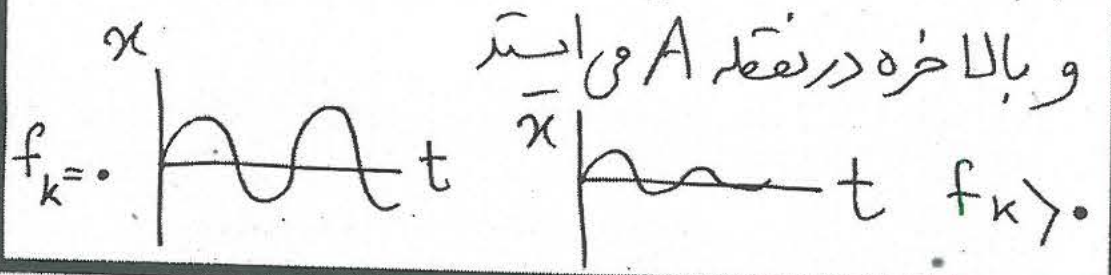 و بالاخره در نقطه A می‌ایستد
x
x
f_k = ۰
t
t
f_k > ۰